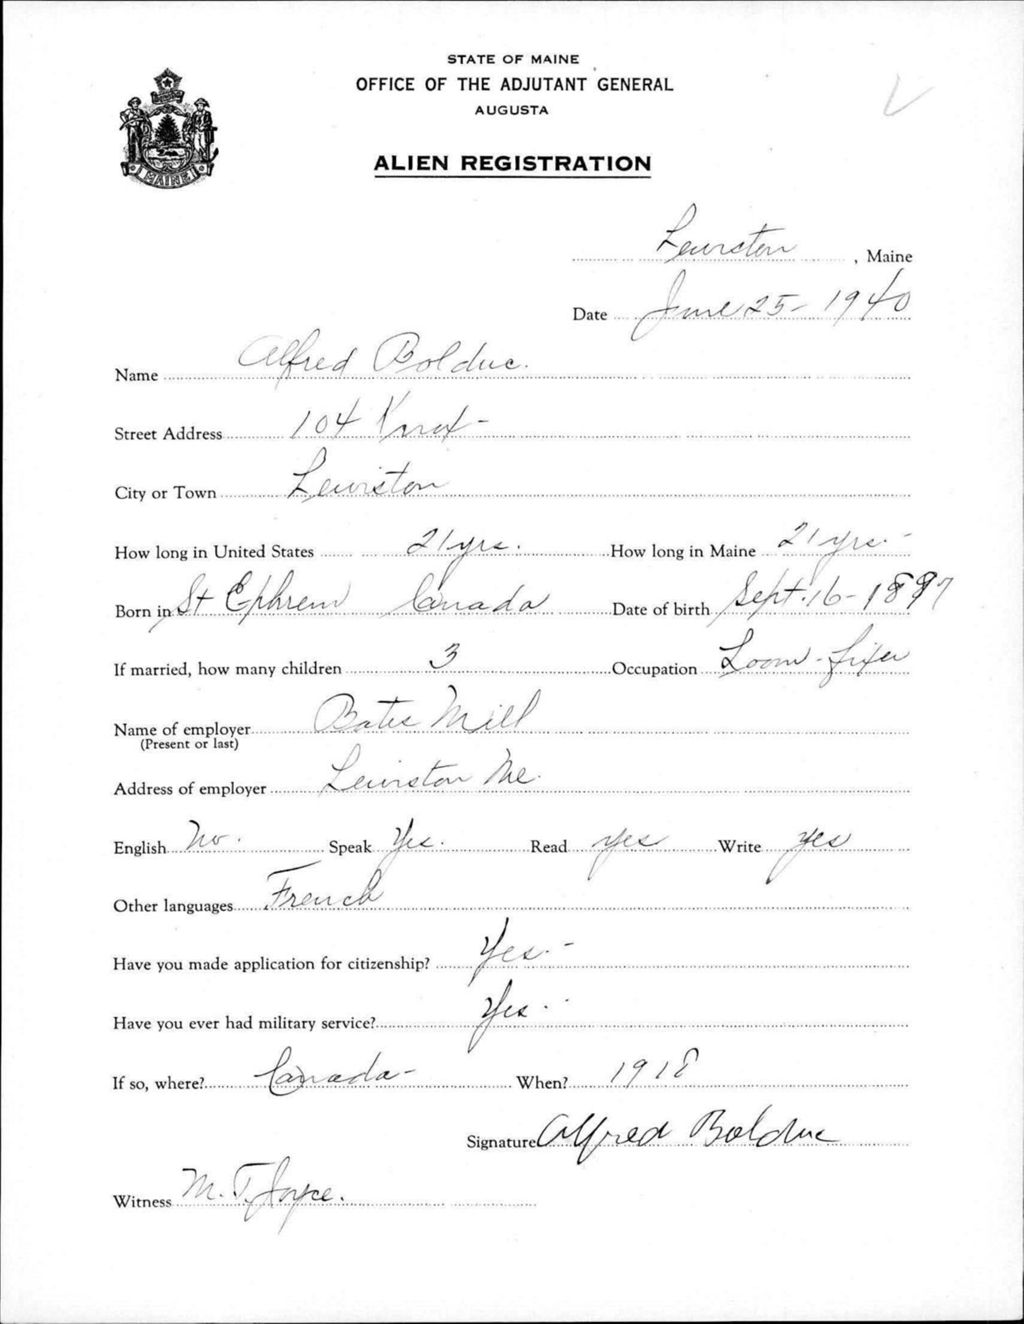 STATE OF MAINE
OFFICE OF THE ADJUTANT GENERAL
AUGUSTA
ALIEN REGISTRATION
MAINE
Lewiston, Maine
Date June 25 - 1940
Name Alfred Bolduc.
Street Address 104 Knox -
City or Town Lewiston
How long in United States 21 yrs. How long in Maine 21 yrs. -
Born in St Ephrem Canada Date of birth Sept. 16 - 1897
If married, how many children 3 Occupation Loom - fixer
Name of employer Bates Mill
(Present or last)
Address of employer Lewiston Me.
English No. Speak Yes. Read yes Write yes
Other languages French
Have you made application for citizenship? Yes. -
Have you ever had military service? Yes - -
If so, where? Canada - When? 1918
Signature Alfred Bolduc
Witness M. T. Joyce.